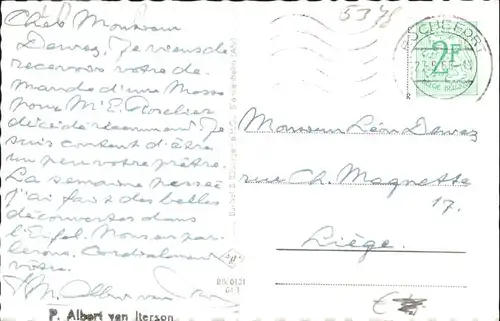 Cher Monsieur
Dewez, Je viens de
recevoir votre de-
mande d'une Messe
pour Mr E. Roselier
décédé récemment. Je
suis content d'être
un peu votre prêtre.
La semaine passée
j'ai fait des belles
découvertes dans
l'Eifel. Nous en par-
lerons. Cordialement
vôtre.
P. Albert van Iterson
5378
ROCHEFORT
2F
Monsieur Léon Dewez
rue Ch. Magnette
17.
Liège.